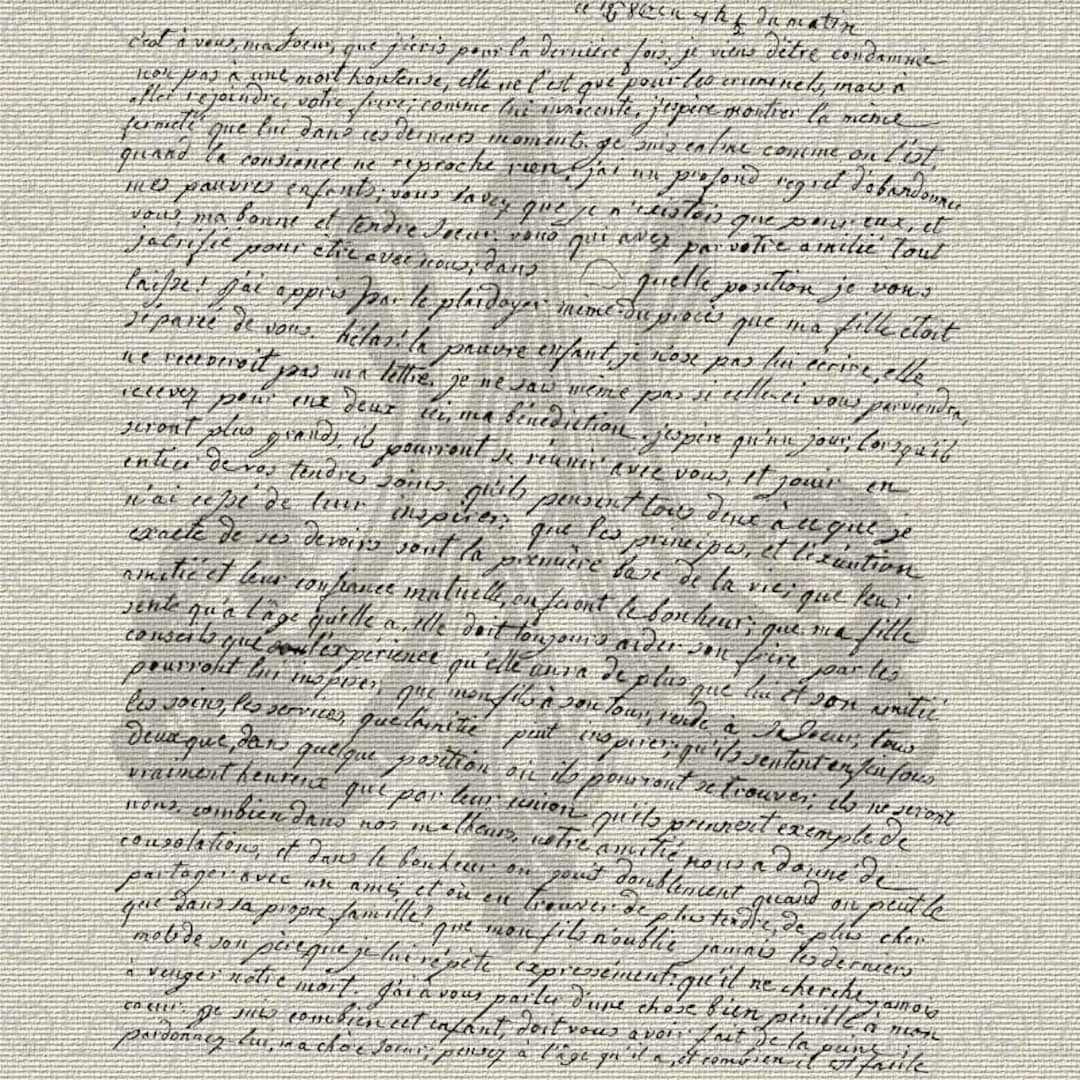 ce 16 8bre 4 h ½ du matin
c'est à vous, ma Soeur, que j'écris pour la dernière fois, je viens d'être condamnée
non pas à une mort honteuse, elle ne l'est que pour les criminels, mais à
aller rejoindre, votre frère; comme lui innocente, j'espère montrer la même
fermeté que lui dans ces derniers moments. Je suis calme comme on l'est,
quand la consience ne reproche rien. j'ai un profond regret d'abandonner
mes pauvres enfants; vous savez que je n'existois que pour eux, et
vous, ma bonne et tendre Soeur. vous qui avez par votre amitié tout
sacrifié pour être avec nous; dans quelle position je vous
laisse! j'ai appris par le plaidoyer même du procès que ma fille étoit
séparée de vous. hélas! la pauvre enfant, je n'ose pas lui écrire, elle
ne recevroit pas ma lettre. je ne sais même pas si celle-ci vous parviendra,
recevez pour eux deux ici, ma bénédiction. j'espère qu'un jour, lorsqu'ils
seront plus grands, ils pourront se réunir avec vous, et jouir en
entier de vos tendres soins. qu'ils pensent tous deux à ce que je
n'ai cessé de leur inspirer; que les principes, et l'exécution
exacte de ses devoirs sont la première base de la vie; que leur
amitié et leur confiance mutuelle, en feront le bonheur; que ma fille
sente qu'à l'âge qu'elle a, elle doit toujours aider son frère par les
conseils que l'expérience qu'elle aura de plus que lui et son amitié
pourront lui inspirer; que mon fils à son tour, rende à sa Soeur, tous
les soins, les services, que l'amitié peut inspirer; qu'ils sentent enfin tous
deux que, dans quelque position où ils pourront se trouver, ils ne seront
vraiment heureux que par leur union, qu'ils prennent exemple de
nous. combien dans nos malheurs, notre amitié nous a donné de
consolations, et dans le bonheur on jouit doublement quand on peut le
partager avec un ami; et où en trouver de plus tendre, de plus cher
que dans sa propre famille? que mon fils n'oublie jamais les derniers
mots de son père que je lui répète expressément: qu'il ne cherche jamais
à venger notre mort. J'ai à vous parler d'une chose bien pénible à mon
coeur. Je sais combien cet enfant, doit vous avoir fait de la peine;
pardonnez-lui, ma chère Soeur; pensez à l'âge qu'il a, et combien il est facile